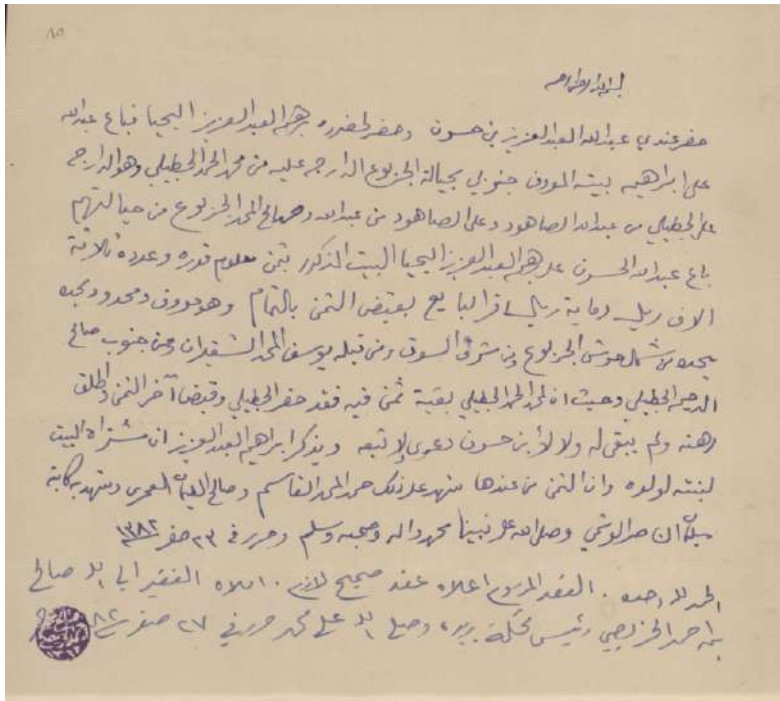 ٨٥
بسم الله الرحمن الرحيم
حضر عندي عبدالله العبدالعزيز بن حسون وحضر لحضوره ابرهيم العبدالعزيز اليحيا فباع عبدالله
على ابراهيم بيته المعروف جنوبي بحيالة الجربوع الدارجه عليه من محمد الحمد الجطيلي وهو الدارج
على الجطيلي من عبدالله الصاهود وعلى الصاهود من عبدالله وصالح المحمد الجربوع من حيالتهم
باع عبدالله الحسون على ابرهيم العبدالعزيز اليحيا البيت المذكور بثمن معلوم قدره وعدده ثلاثة
الاف ريال وماية ريال اقر البايع بقبض الثمن بالتمام وهو معروف ومحدود بحده
يحده من شمال حوش الجربوع ومن شرق السوق ومن قبله يوسف المحمد الشقيران ومن جنوب صالح
الجطيلي وحيث ان لمحمد الحمد الجطيلي بقية ثمن فيه فقد حضر الجطيلي وقبض آخر الثمن واطلق
رهنه ولم يبقى له ولا لابن حسون دعوى ولا تبعه ويذكر ابراهيم العبدالعزيز ان مشتراه البيت
لبنته لولوه وان الثمن من عندها شهد على ذلك حمد المحمد القاسم وصالح العمري وشهد به كاتبه
سليمان الوشمي وصلى الله على نبينا محمد واله وصحبه وسلم وحرر في ٢٣ صفر ١٣٨٢
الحمد لله وحده . العقد المرسوم اعلاه عقد صحيح لازم . املاه الفقير الى الله صالح
بن احمد الخريصي رئيس محكمة بريده وصلى الله على محمد حرر في ٢٧ صفر ٨٢